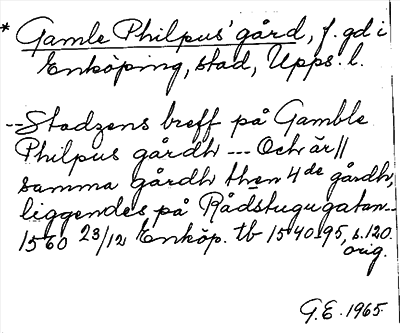 * Gamle Philpus' gård, f. gd i
Enköping, stad, Upps. l.
-- Stadzens breff på Gamble
Philpus gårdh --- Och är //
samma gårdh then 4de gårdh,
liggendes på Rådstugugatan --
1560 23/12 Enköp. tb 1540-95, s. 120.
orig.
G.E. 1965.